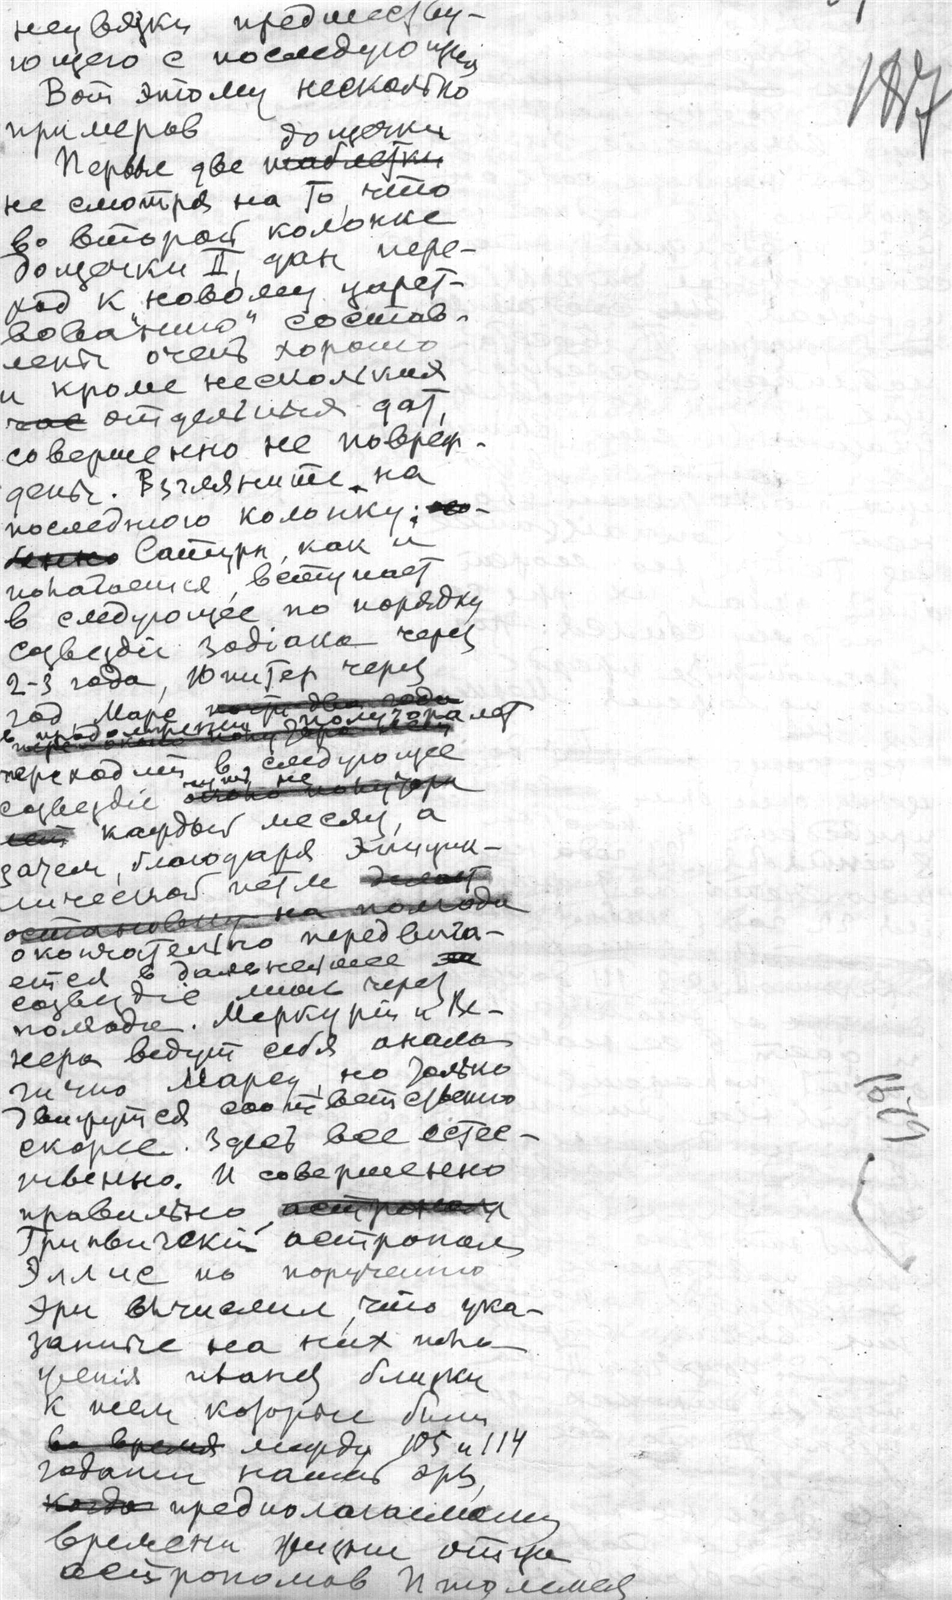 187
неувязки предшеству-
ющего с последующим
Вот этому несколько
примеров
дощечки
Первые две таблетки
не смотря на то, что
во второй колонке
дощечки II, дан пере-
ход к новому царст-
вова"нию" состав-
лены очень хорошо
и кроме нескольких
отдельных дат,
совершенно не повреж-
дены. Взгляните на
последнюю колонку:
Сатурн, как и
полагается, вступает
в следующее по порядку
созвездiе зодiака через
2-3 года, Юпитер через
год, Марс почти два года
в продолжении полугода
переходит в следующее
созвездiе чуть не около полутора
лет каждый месяц, а
затем, благодаря эпицик-
лической петле делает
остановку на полгода
окончательно передвига-
ется в дальнейшее
созвездiе лишь через
полгода. Меркурiй и Ве-
нера ведут себя анало
гично Марсу, но только
движутся соответственно
скорее. Здесь все естес-
твенно. И совершенно
правильно астроном
Гринвичскiй астроном
Эллис по порученiю
Эри вычислил, что ука-
занные на них поло
женiя планет близки
к тем которые были
во время между 105 и 114
годами нашей эры,
когда предполагаемому
времени жизни отца
астрономов Птолемея